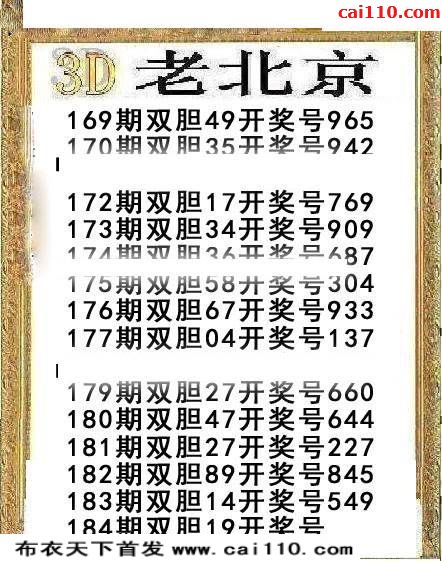 cai110.com
3D 老北京
169期双胆49开奖号965
170期双胆35开奖号942
172期双胆17开奖号769
173期双胆34开奖号909
174期双胆36开奖号687
175期双胆58开奖号304
176期双胆67开奖号933
177期双胆04开奖号137
179期双胆27开奖号660
180期双胆47开奖号644
181期双胆27开奖号227
182期双胆89开奖号845
183期双胆14开奖号549
184期双胆19开奖号
布衣天下首发 www.cai110.com